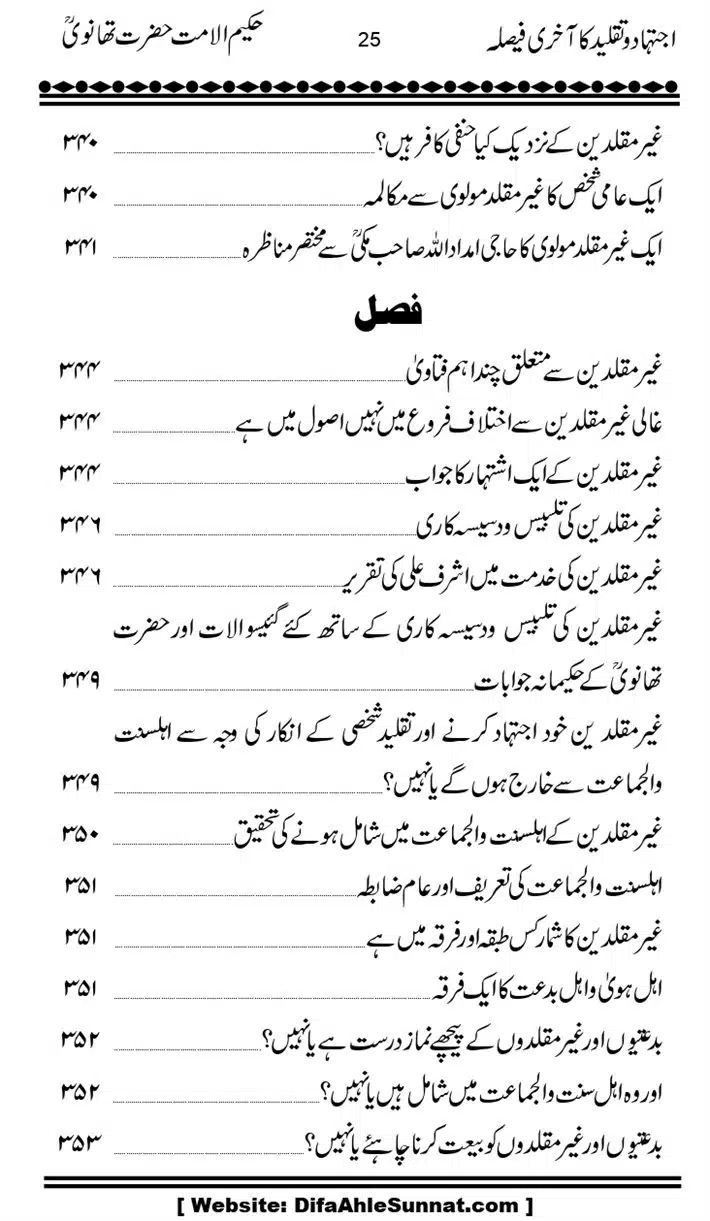 اجتہاد و تقلید کا آخری فیصلہ 25 حکیم الامت حضرت تھانویؒ
غیر مقلدین کے نزدیک کیا حنفی کافر ہیں؟ ۳۴۰
ایک عامی شخص کا غیر مقلد مولوی سے مکالمہ ۳۴۰
ایک غیر مقلد مولوی کا حاجی امداد اللہ صاحب مکیؒ سے مختصر مناظرہ ۳۴۱
فصل
غیر مقلدین سے متعلق چند اہم فتاویٰ ۳۴۴
غالی غیر مقلدین سے اختلاف فروع میں نہیں اصول میں ہے ۳۴۴
غیر مقلدین کے ایک اشتہار کا جواب ۳۴۴
غیر مقلدین کی تلبیس ودسیسہ کاری ۳۴۶
غیر مقلدین کی خدمت میں اشرف علی کی تقریر ۳۴۶
غیر مقلدین کی تلبیس ودسیسہ کاری کے ساتھ کئے گئیسوالات اور حضرت
تھانویؒ کے حکیمانہ جوابات ۳۴۹
غیر مقلدین خود اجتہاد کرنے اور تقلید شخصی کے انکار کی وجہ سے اہلسنت
والجماعت سے خارج ہوں گے یا نہیں؟ ۳۴۹
غیر مقلدین کے اہلسنت والجماعت میں شامل ہونے کی تحقیق ۳۵۰
اہلسنت والجماعت کی تعریف اور عام ضابطہ ۳۵۱
غیر مقلدین کا شمار کس طبقہ اور فرقہ میں ہے ۳۵۱
اہل ہویٰ و اہل بدعت کا ایک فرقہ ۳۵۱
بدعتیوں اور غیر مقلدوں کے پیچھے نماز درست ہے یا نہیں؟ ۳۵۲
اور وہ اہل سنت والجماعت میں شامل ہیں یا نہیں؟ ۳۵۲
بدعتیوں اور غیر مقلدوں کو بیعت کرنا چاہئے یا نہیں؟ ۳۵۳
[ Website: DifaAhleSunnat.com ]